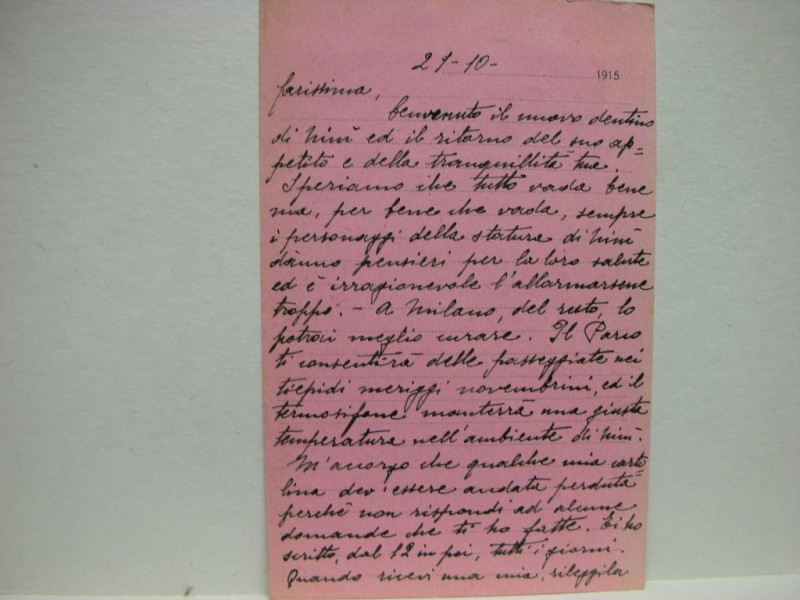 21-10- 1915
Carissima,
benvenuto il nuovo dentino
di Ninì ed il ritorno del suo ap=
petito e della tranquillità tua.
Speriamo che tutto vada bene
ma, per bene che vada, sempre
i personaggi della statura di Ninì
dànno pensieri per la loro salute
ed è irragionevole l'allarmarsene
troppo. - A Milano, del resto, lo
potrai meglio curare. Il Parco
ti consentirà delle passeggiate nei
tiepidi meriggi novembrini, ed il
termosifone manterrà una giusta
temperatura nell'ambiente di Ninì.
M'accorgo che qualche mia carto
lina dev'essere andata perduta
perchè non rispondi ad alcune
domande che ti ho fatte. Ti ho
scritto, dal 12 in poi, tutti i giorni.
Quando ricevi una mia, rileggila